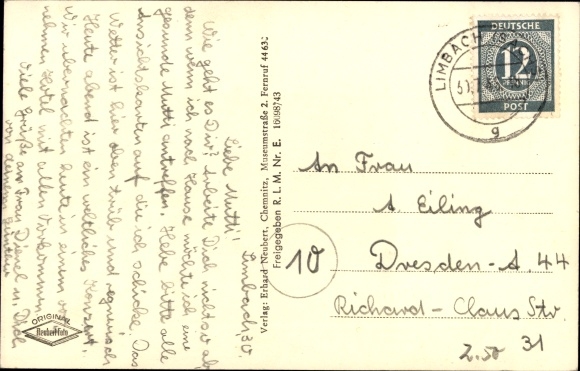 Limbach, 30.
Liebe Mutti!
Wie geht es Dir? Arbeite Dich nicht so ab,
denn wenn ich nach Hause möchte ich eine
gesunde Mutti antreffen. Hebe bitte alle
Ansichtskarten auf die ich schicke. Das
Wetter ist hier oben trüb und regnerisch
Heute abend ist ein weltliches Konzert.
Wir übernachten heute in einem
nehmen Hotel mit allen
Viele Grüße an Frau u. Dich
von
ORIGINAL
Neubert-Foto
Verlag: Erhard Neubert, Chemnitz, Museumstraße 2, Fernruf 44632
Freigegeben R. L. M. Nr. E. 16098/43
DEUTSCHE
12
PFENNIG
POST
LIMBACH
g
An Frau
A. Eiling
10 Dresden-A. 44
Richard-Claus Str
31
2.50